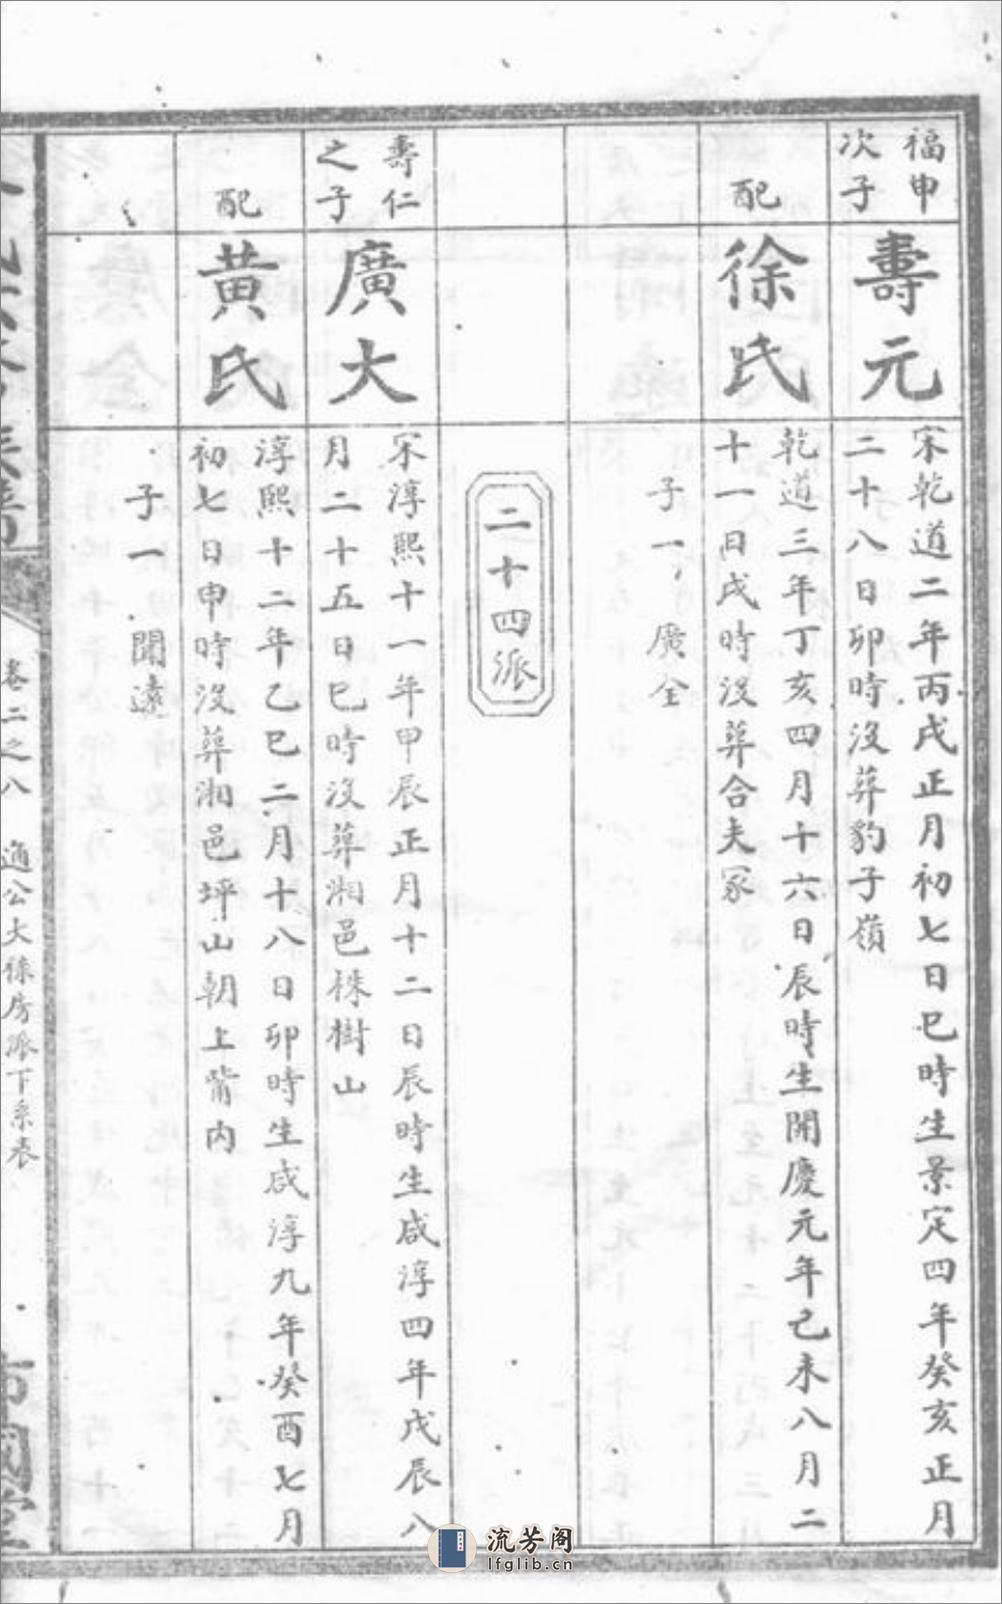 福申
次子
壽元
宋乾道二年丙戌正月初七日巳時生景定四年癸亥正月
二十八日卯時沒葬豹子嶺
配
徐氏
乾道三年丁亥四月十六日辰時生開慶元年己未八月二
十一日戌時沒葬合夫冢
子一 廣全
二十四派
壽仁
之子
廣大
宋淳熙十一年甲辰正月十二日辰時生咸淳四年戊辰八
月二十五日巳時沒葬湘邑株樹山
配
黃氏
淳熙十二年乙巳二月十八日卯時生咸淳九年癸酉七月
初七日申時沒葬湘邑坪山朝上觜內
子一 聞遠
卷二之八 通公大錄房派下系表
流芳阁
lfglib.cn